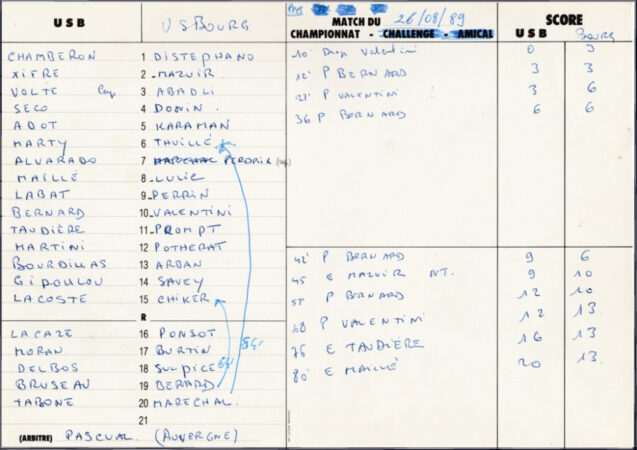 U S B USBOURG
CHAMBERON 1 DISTEPHANO
XIFRE 2 MAZUIR
VOLTE Cap 3 ABADLI
SECO 4 DONIN
ADOT 5 KARAMAN
MARTY 6 THUILLÉ
ALVARADO 7 MARECHAL PERDRIX (cap)
MAILLÉ 8 LULIC
LABAT 9 PERRIN
BERNARD 10 VALENTINI
TAUDIÈRE 11 PROMPT
MARTINI 12 POTHERAT
BOURDILLAS 13 ARBAN
GIPOULOU 14 SAVEY
LACOSTE 15 CHIKER
R
LACAZE 16 PONSOT
MORAN 17 BURTIN
DELBOS 18 SULPICE
BRUSEAU 19 BERARD
TABONE 20 MARECHAL
21
(ARBITRE) PASCUAL (AUVERGNE)
64'
54'
MATCH DU 26/08/89
CHAMPIONNAT - CHALLENGE - AMICAL
SCORE
U S B BOURG
10' Drop Valentini 0 3
12' P BERNARD 3 3
P VALENTINI 3 6
36 P BERNARD 6 6
42' P BERNARD 9 6
45 E MAZUIR NT. 9 10
P BERNARD 12 10
68 P VALENTINI 12 13
76 E TAUDIÈRE 16 13
80' E MAILLÉ 20 13